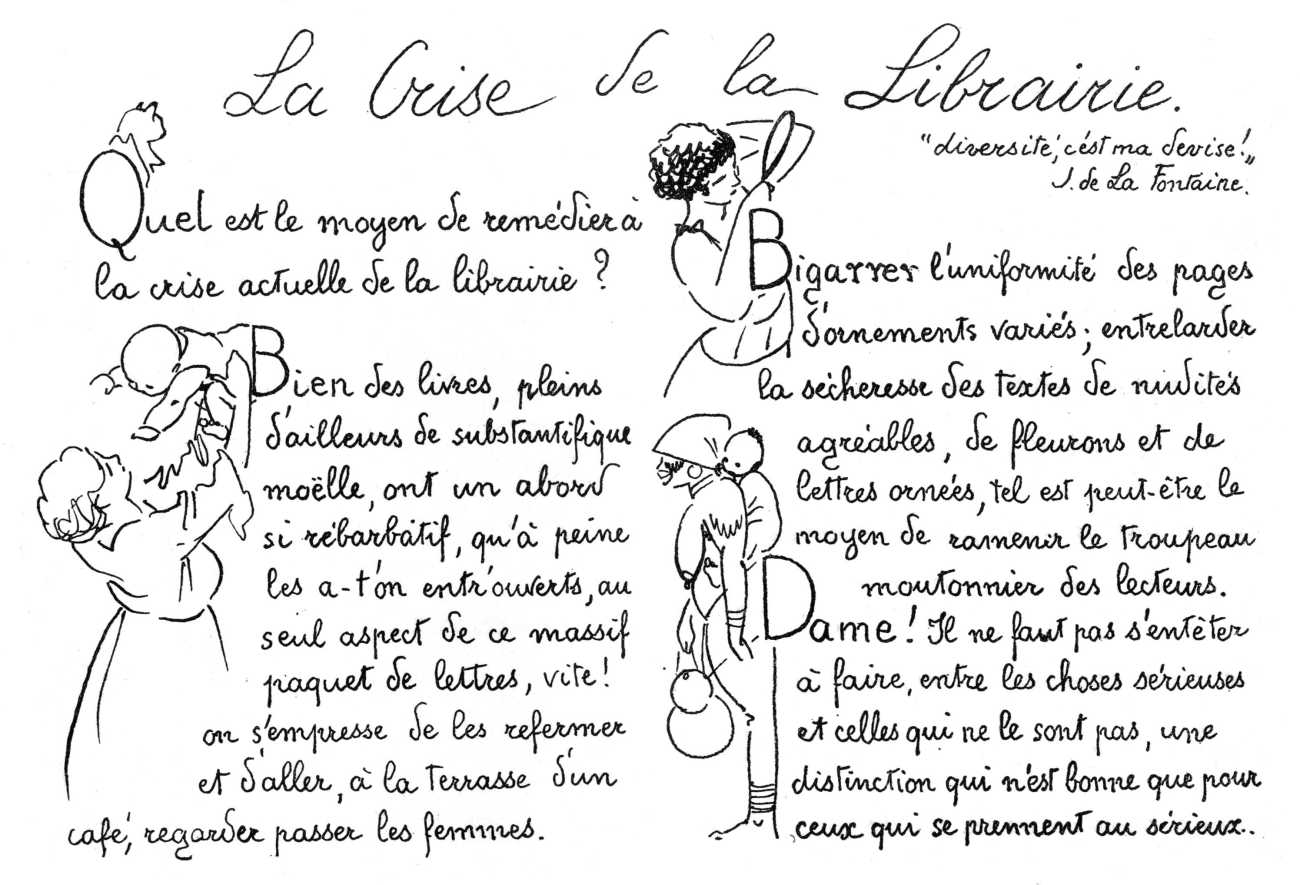 La Crise de la Librairie.
"diversité, c'est ma devise!"
J. de La Fontaine.
Quel est le moyen de remédier à
la crise actuelle de la librairie ?
Bien des livres, pleins
d'ailleurs de substantifique
moëlle, ont un abord
si rébarbatif, qu'à peine
les a-t'on entr'ouverts, au
seul aspect de ce massif
paquet de lettres, vite!
on s'empresse de les refermer
et d'aller, à la terrasse d'un
café, regarder passer les femmes.
Bigarrer l'uniformité des pages
d'ornements variés; entrelarder
la sécheresse des textes de nudités
agréables, de fleurons et de
lettres ornées, tel est peut-être le
moyen de ramener le troupeau
moutonnier des lecteurs.
Dame! Il ne faut pas s'entêter
à faire, entre les choses sérieuses
et celles qui ne le sont pas, une
distinction qui n'est bonne que pour
ceux qui se prennent au sérieux..